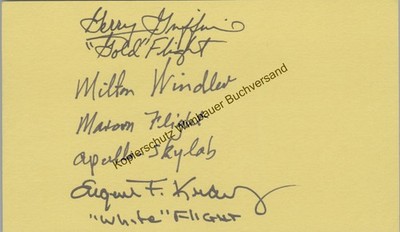 Gerry Griffin
"Gold" Flight
Milton Windler
Maroon Flight
Apollo Skylab
Eugene F. Kranz
"White" FLIGHT
Kopierschutz Wimbauer Buchversand